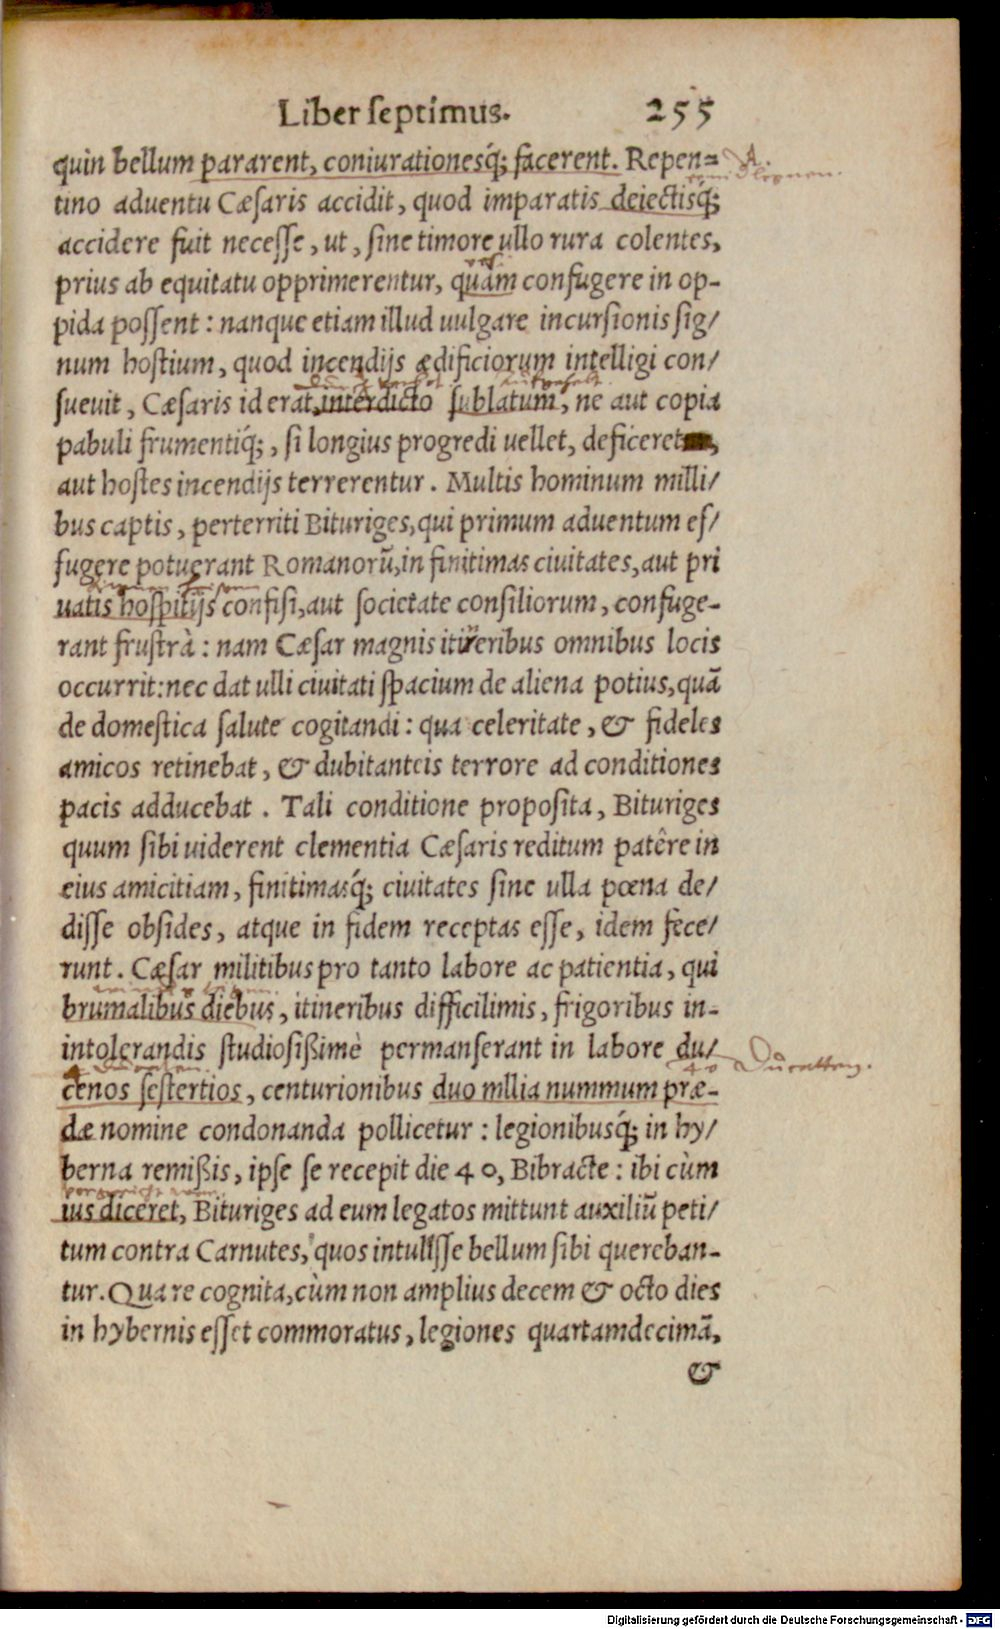 Liber ſeptimus. 255
quin bellum pararent, coniurationesq́; facerent. Repen=
tino aduentu Cæſaris accidit, quod imparatis deiectisq́;
accidere fuit neceſſe, ut, ſine timore ullo rura colentes,
prius ab equitatu opprimerentur, quàm confugere in op-
pida poſſent: nanque etiam illud uulgare incurſionis ſig/
num hoſtium, quod incendijs ædificiorum intelligi con/
ſueuit, Cæſaris id erat interdicto ſublatum, ne aut copia
pabuli frumentiq́;, ſi longius progredi uellet, deficeret
aut hoſtes incendijs terrerentur. Multis hominum milli/
bus captis, perterriti Bituriges, qui primum aduentum ef/
fugere potuerant Romanorũ, in finitimas ciuitates, aut pri
uatis hoſpitijs confiſi, aut ſocietate conſiliorum, confuge-
rant fruſtrà: nam Cæſar magnis itineribus omnibus locis
occurrit: nec dat ulli ciuitati ſpacium de aliena potius, quã
de domeſtica ſalute cogitandi: qua celeritate, & fideles
amicos retinebat, & dubitanteis terrore ad conditiones
pacis adducebat. Tali conditione propoſita, Bituriges
quum ſibi uiderent clementia Cæſaris reditum patêre in
eius amicitiam, finitimasq́; ciuitates ſine ulla pœna de/
diſſe obſides, atque in fidem receptas eſſe, idem fece/
runt. Cæſar militibus pro tanto labore ac patientia, qui
brumalibus diebus, itineribus difficilimis, frigoribus in-
intolerandis ſtudioſißimè permanſerant in labore du/
cenos ſeſtertios, centurionibus duo mllia nummum præ-
dæ nomine condonanda pollicetur: legionibusq́; in hy/
berna remißis, ipſe ſe recepit die 40, Bibracte: ibi cùm
ius diceret, Bituriges ad eum legatos mittunt auxiliũ peti/
tum contra Carnutes, quos intuliſſe bellum ſibi quereban-
tur. Qua re cognita, cùm non amplius decem & octo dies
in hybernis eſſet commoratus, legiones quartamdecimã,
&
Digitalisierung gefördert durch die Deutsche Forschungsgemeinschaft - DFG